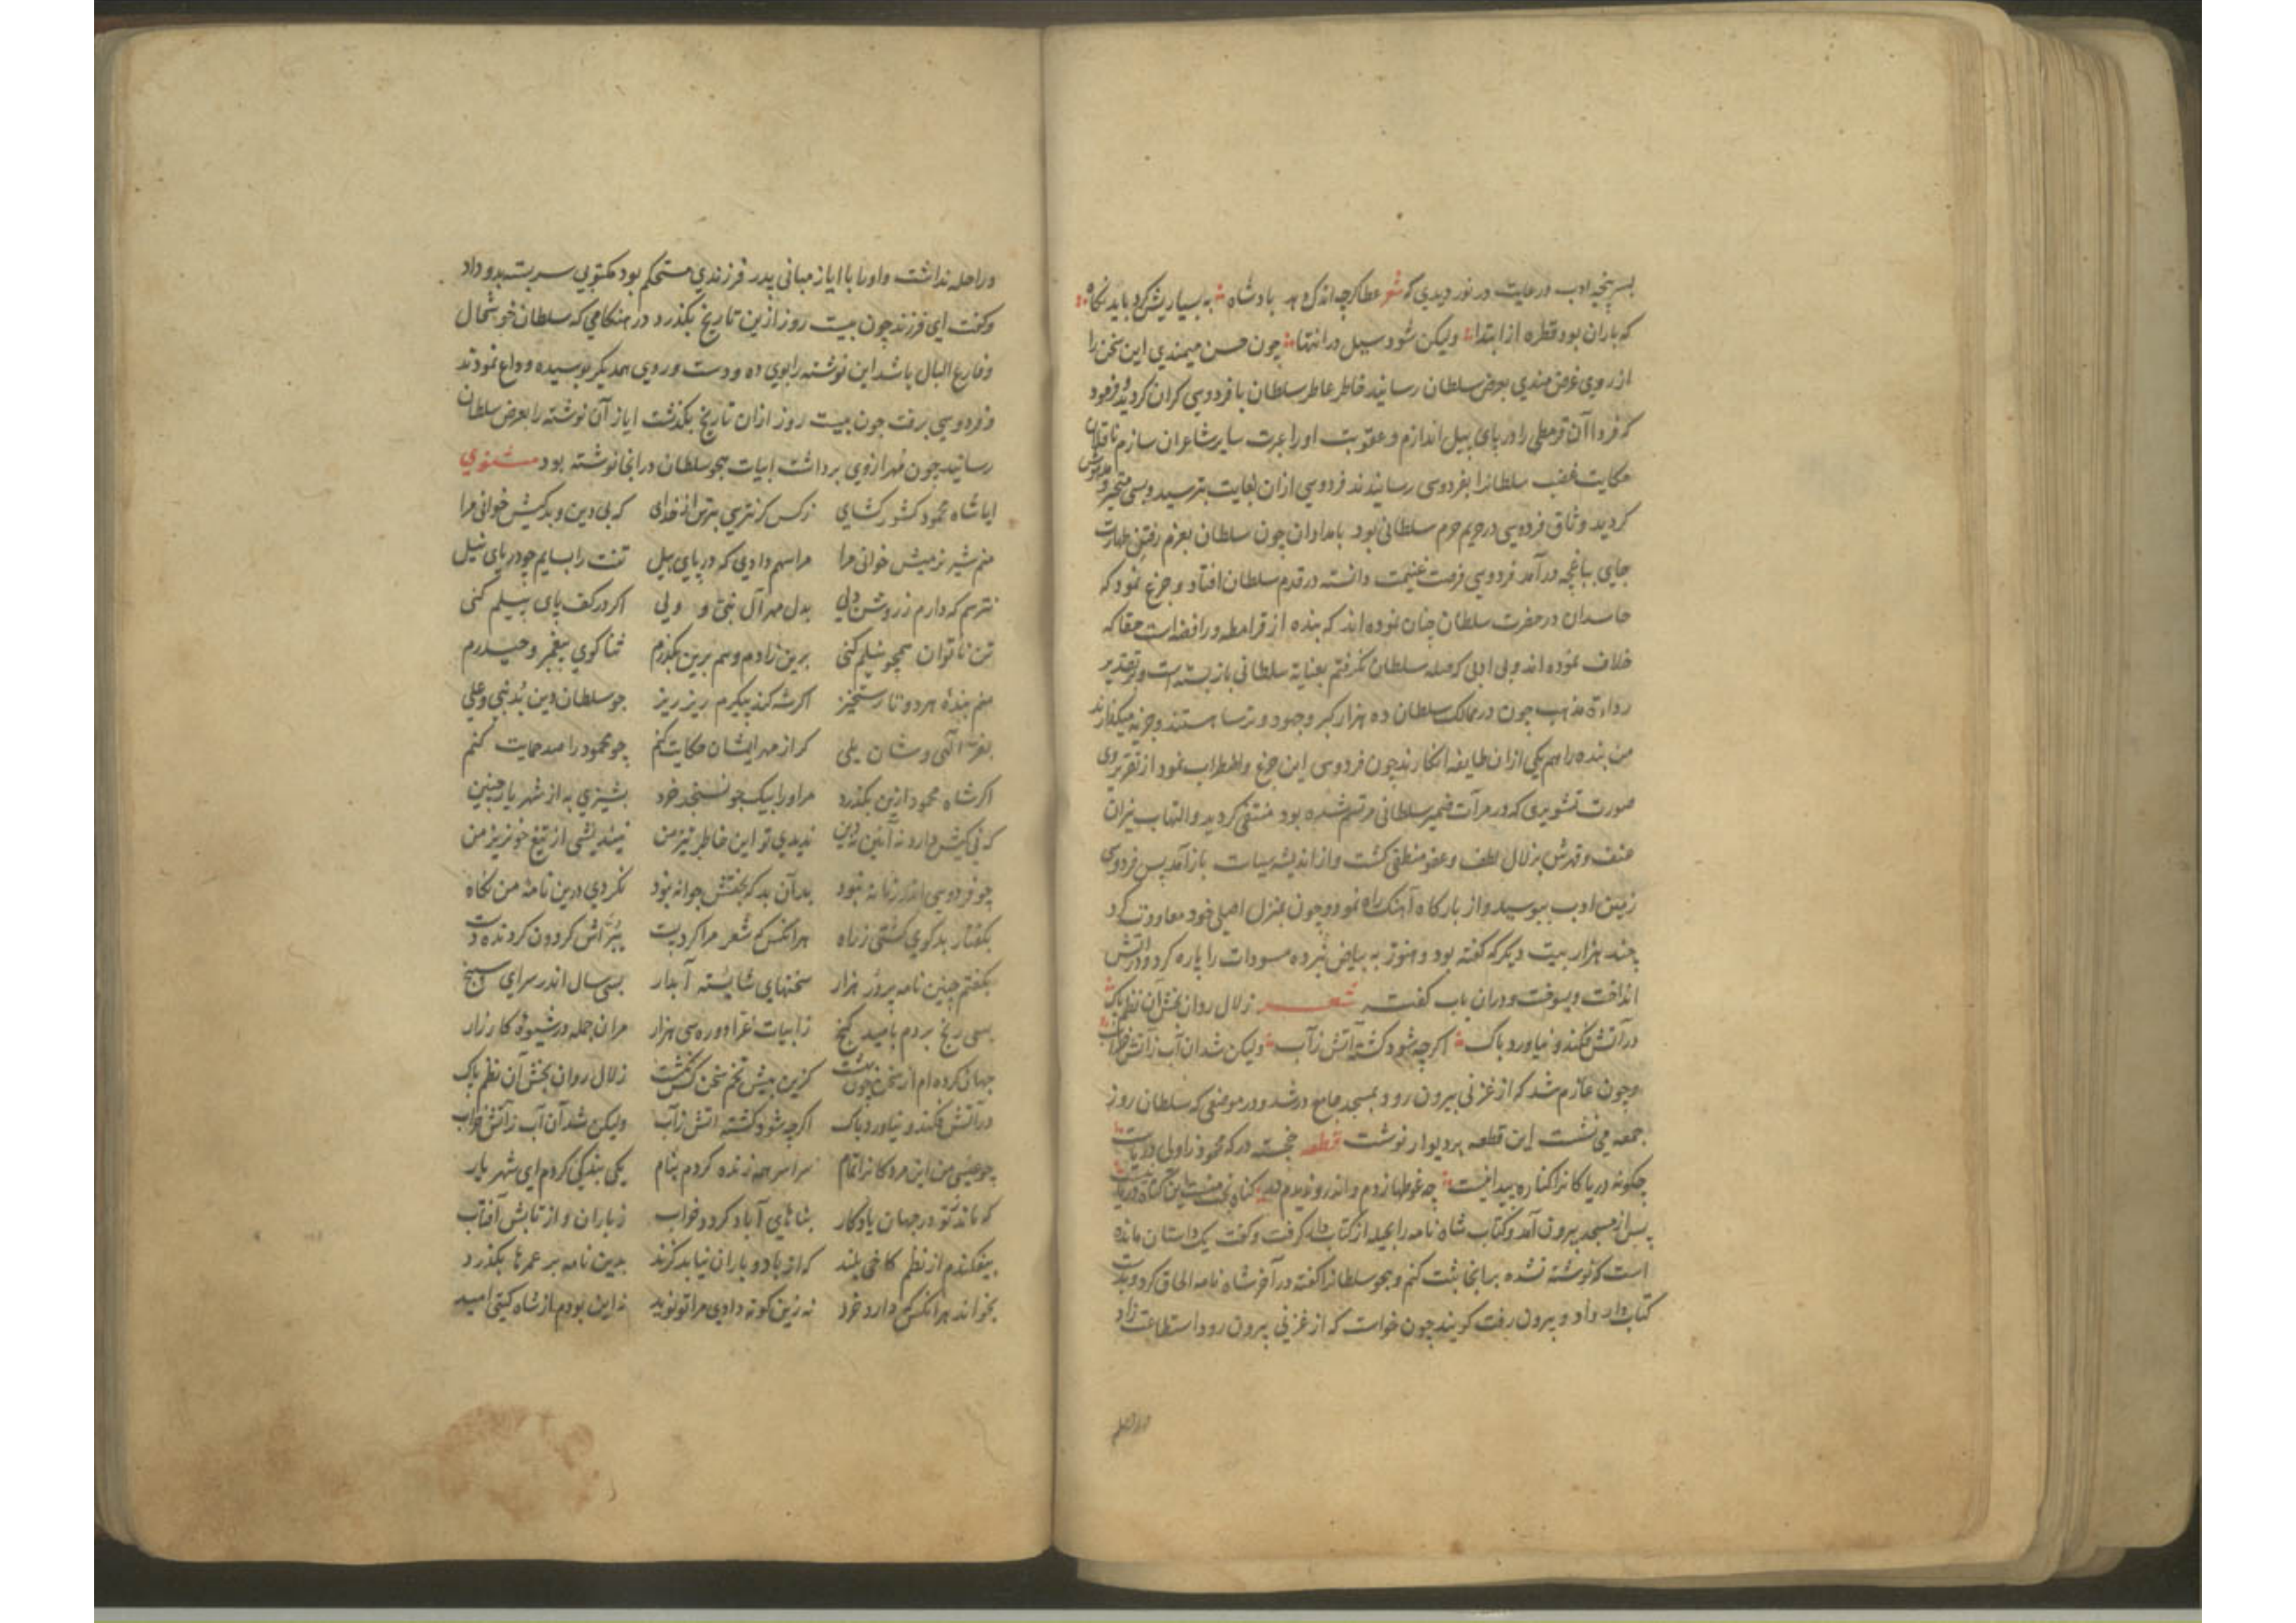 بسر پنجه ادب در عایت در نور دیدی که شعر عطا کرچه اندک دهد بادشاه به بسیاریش کرد باید نکاه
که باران بود قطره از ابتدا ولیکن شود سیل در انتها چون حسن میمندی این سخن را
از روی غرض مندی بعرض سلطان رسانید خاطر عاطر سلطان با فردوسی کران کردید و فرمود
که فردا آن قرمطی را در پای پیل اندازم و عقوبت او را عبرت سایر شاعران سازم ناقلان
حکایت غضب سلطانرا بفردوسی رسانیدند فردوسی ازان بغایت بترسید و بسی متحیر و مدهوش
کردید وثاق فردوسی در حریم حرم سلطانی بود بامدادان چون سلطان بعزم رفتن طهارت
جای بباغچه در آمد فردوسی فرصت غنیمت دانسته در قدم سلطان افتاد و جزع نمود که
حاسدان در حضرت سلطان چنان نموده اند که بنده از قرامطه و رافضه است حقا که
خلاف نموده اند و بی ادبی که صله سلطان نکرفتم بعنایة سلطانی باز بسته است و بتقدیر
مذهب چون در ممالک سلطان ده هزار کبر و جهود و ترسا هستند و جزیه میکذارند
من بنده را هم یکی ازان طایفه انکارند چون فردوسی این جزع و اضطراب نمود از تقریر وی
صورت تشویری که در مرآت ضمیر سلطانی مرتسم شده بود منتفی کردید و التهاب نیران
عنف و قهرش بزلال لطف و عفو منطفی کشت و از اندیشه سیاست باز آمد پس فردوسی
زمین ادب ببوسید و از بارکاه آهنک راه نمود و چون بمنزل اصلی خود معاودت کرد
چند هزار بیت دیکر که کفته بود و هنوز به بیاض نبرده مسودات را پاره کرد و در اتش
انداخت و بسوخت و دران باب کفت شعر زلال روان بخش آن نظم پاک
در آتش فکند و نیاورد باک اکرچه شود کشته آتش ز آب ولیکن شد آن آب ز آتش خراب
و چون عازم شد که از غزنی بیرون رود بمسجد جامع در شد و در موضعی که سلطان روز
جمعه می نشست این قطعه بر دیوار نوشت قطعه خجسته درکه محمود زاولی دریاست
چکونه دریا کانرا کناره پیدا نیست چه غوطها زدم و اندرو ندیدم در کناه بخت منست این کناه دریا نیست
پس از مسجد بیرون آمد و کتاب شاه نامه را بحیله از کتاب دار کرفت و کفت یک داستان مانده
است که نوشته نشده بدانجا ثبت کنم و هجو سلطانرا کفته در آخر شاه نامه الحاق کرد و بدست
کتاب دار داد و بیرون رفت کویند چون خواست که از غزنی بیرون رود استطاعت زاد
وراحله
وراحله نداشت و او را با ایاز مبانی پدر فرزندی مستحکم بود مکتوبی سر بسته بدو داد
و کفت ای فرزند چون بیست روز ازین تاریخ بکذرد در هنکامی که سلطان خوشحال
و فارغ البال باشد این نوشته را بوی ده و دست و روی همدیکر بوسیده وداع نمودند
و فردوسی برفت چون بیست روز ازان تاریخ بکذشت ایاز آن نوشته را بعرض سلطان
رسانید چون مهر ازوی برداشت ابیات هجو سلطان درانجا نوشته بود مثنوی
ایا شاه محمود کشور کشای ز کس کر نترسی بترس از خدای که بی دین و بد کیش خوانی مرا
منم شیر نر میش خوانی مرا مرا سهم دادی که در پای پیل تنت را بسایم چو دریای نیل
نترسم که دارم ز روشن دلی بدل مهر آل نبی و ولی اکر در کف پای پیلم کنی
تن ناتوان همچو نیلم کنی برین زادم و هم برین بکذرم ثنا کوی پیغمبر و حیدرم
منم بنده هر دو تا رستخیز اکر شه کند پیکرم ریز ریز چو سلطان دین بد نبی و علی
بفر الهی و شان یلی کر از مهر ایشان حکایت کنم چو محمود را صد حمایت کنم
اکر شاه محمود ازین بکذرد مر او را بیک جو نسنجد خرد بشیزی به از شهریار چنین
که نی کیش دارد نه آئین و دین ندیدی تو این خاطر تیز من نیندیشی از تیغ خونریز من
چو فردوسی اندر زمانه نبود بدان بد که بختش جوانه نبود نکردی درین نامه من نکاه
بکفتار بدکوی کشتی ز راه هرانکس که شعر مرا کرد پست نکیردش کردون کردنده دست
بکفتم چنین نامه پرورز هزار سخنهای شایسته آبدار بسی سال اندر سرای سپنج
بسی رنج بردم بامید کنج ز ابیات غرا دو ره سی هزار مر آن جمله در شیوه کارزار
جهان کرده ام از سخن چون بهشت کزین بیش تخم سخن کس نکشت زلال روان بخش آن نظم پاک
در آتش فکند و نیاورد باک اکرچه شود کشته اتش ز آب ولیکن شد آن آب ز آتش خراب
چو عیسی من این مردکانرا تمام سراسر همه زنده کردم بنام یکی بندکی کردم ای شهریار
که ماند ز تو در جهان یادکار بناهای آباد کردد خراب ز باران و از تابش آفتاب
بیفکندم از نظم کاخی بلند که از باد و باران نیابد کزند بدین نامه بر عمرها بکذرد
بخواند هر انکس که دارد خرد نه زین کونه دادی مرا تو نوید نه این بودم از شاه کیتی امید